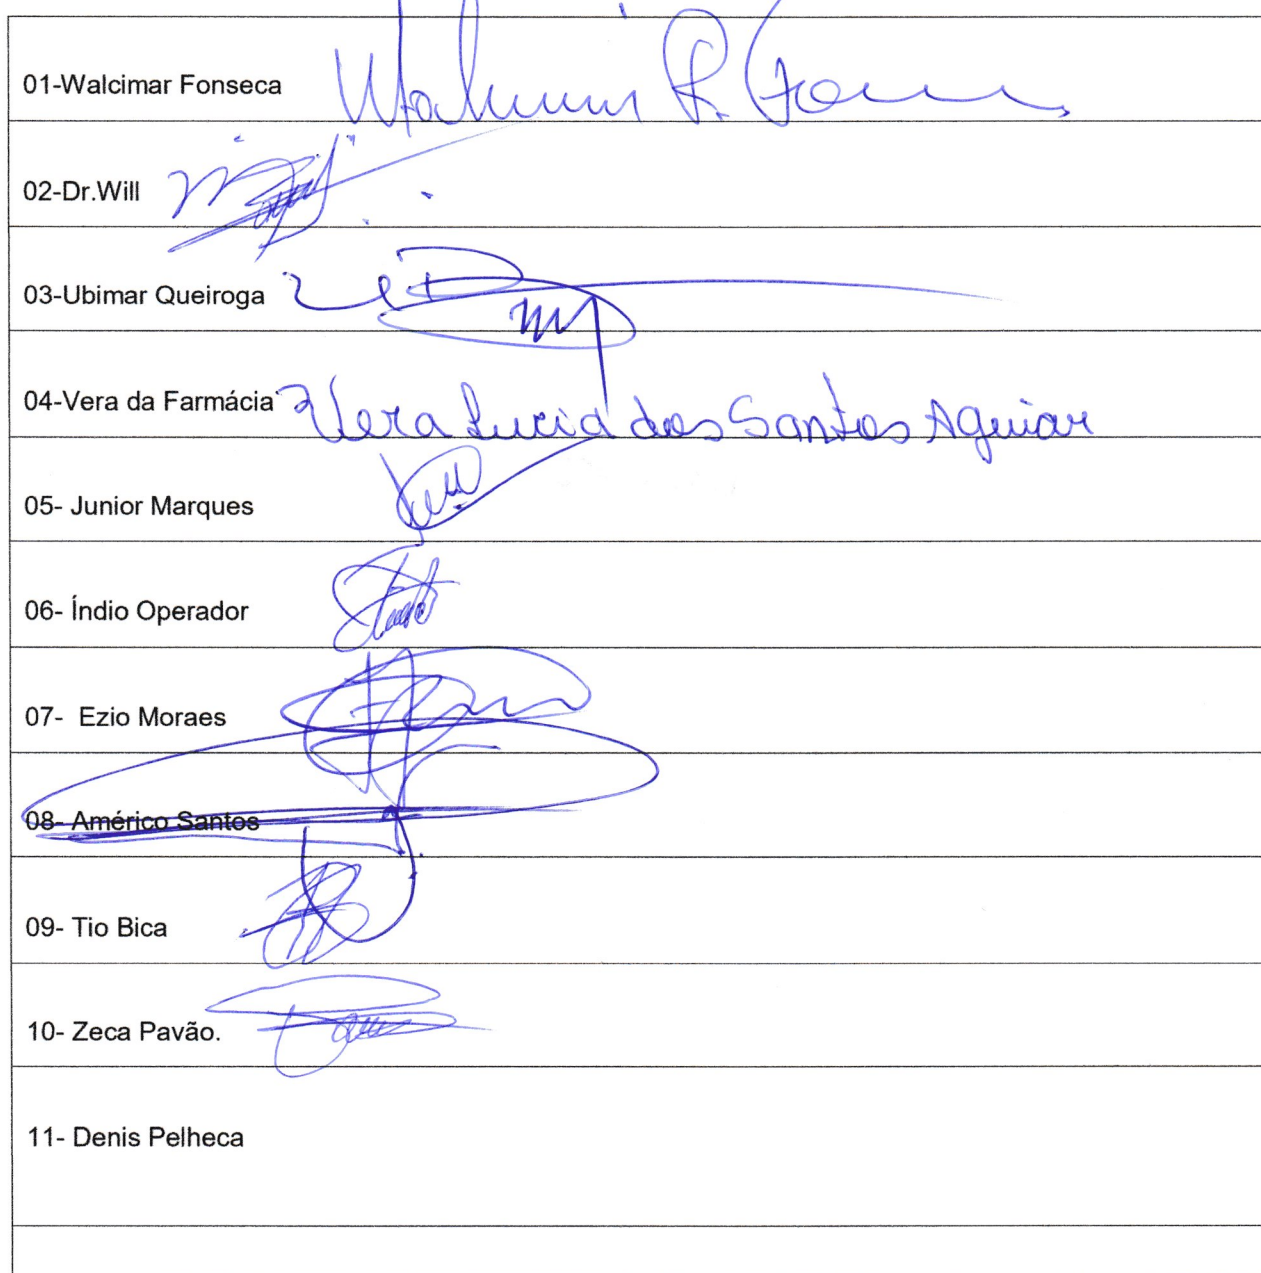 01-Walcimar Fonseca
02-Dr.Will
03-Ubimar Queiroga
04-Vera da Farmácia Vera Lucia dos Santos Aguiar
05- Junior Marques
06- Índio Operador
07- Ezio Moraes
08- Américo Santos
09- Tio Bica
10- Zeca Pavão.
11- Denis Pelheca